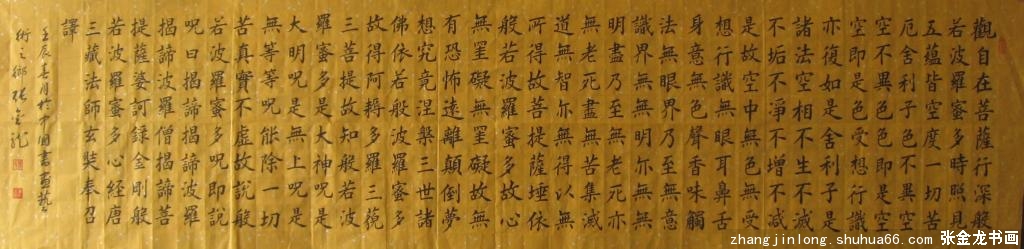 觀自在菩薩行深般
若波羅蜜多時照見
五蘊皆空度一切苦
厄舍利子色不異空
空不異色色即是空
空即是色受想行識
亦復如是舍利子是
諸法空相不生不滅
不垢不淨不增不減
是故空中無色無受
想行識無眼耳鼻舌
身意無色聲香味觸
法無眼界乃至無意
識界無無明亦無無
明盡乃至無老死亦
無老死盡無苦集滅
道無智亦無得以無
所得故菩提薩埵依
般若波羅蜜多故心
無罣礙無罣礙故無
有恐怖遠離顛倒夢
想究竟涅槃三世諸
佛依般若波羅蜜多
故得阿耨多羅三藐
三菩提故知般若波
羅蜜多是大神呪是
大明呪是無上呪是
無等等呪能除一切
苦真實不虛故說般
若波羅蜜多呪即說
呪曰揭諦揭諦波羅
揭諦波羅僧揭諦菩
提薩婆訶錄金剛般
若波羅蜜多心經唐
三藏法師玄奘奉召
譯
壬辰春月於中國書畫藝
術之鄉張金龍
zhangjinlong.shuhua66.com 张金龙书画